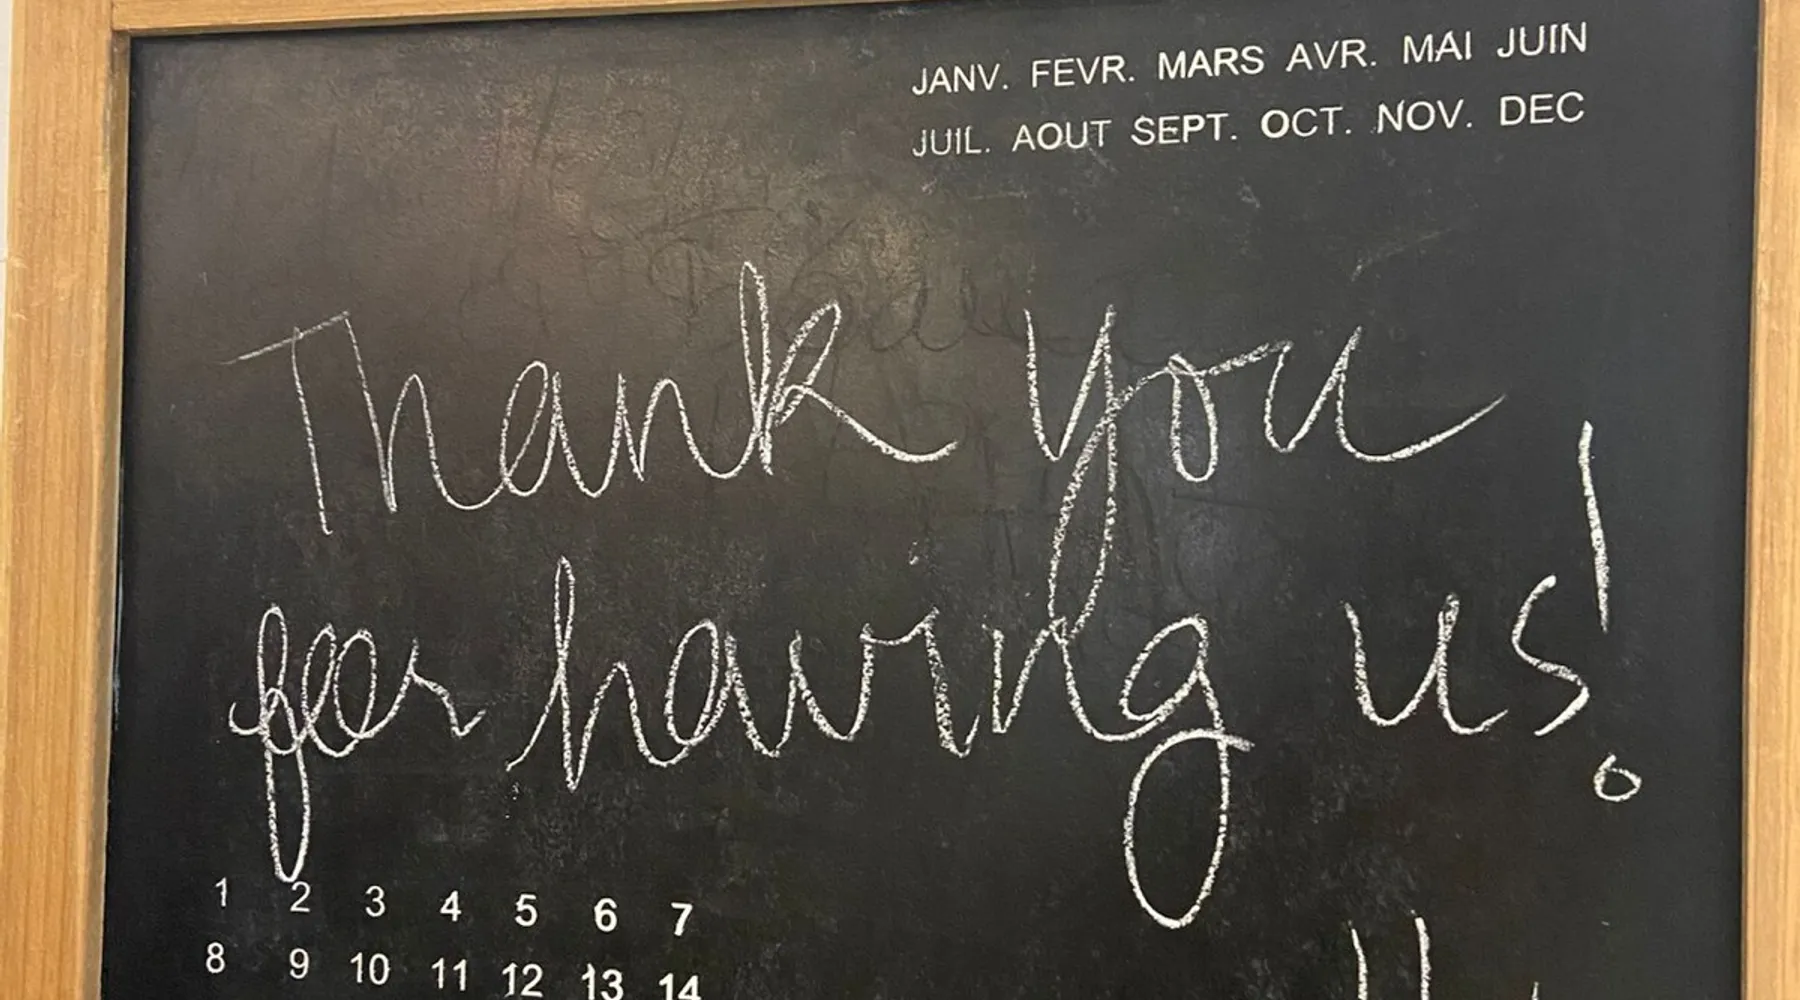 JANV. FEVR. MARS AVR. MAI JUIN
JUIL. AOUT SEPT. OCT. NOV. DEC
Thank you
for having us!
1 2 3 4 5 6 7
8 9 10 11 12 13 14